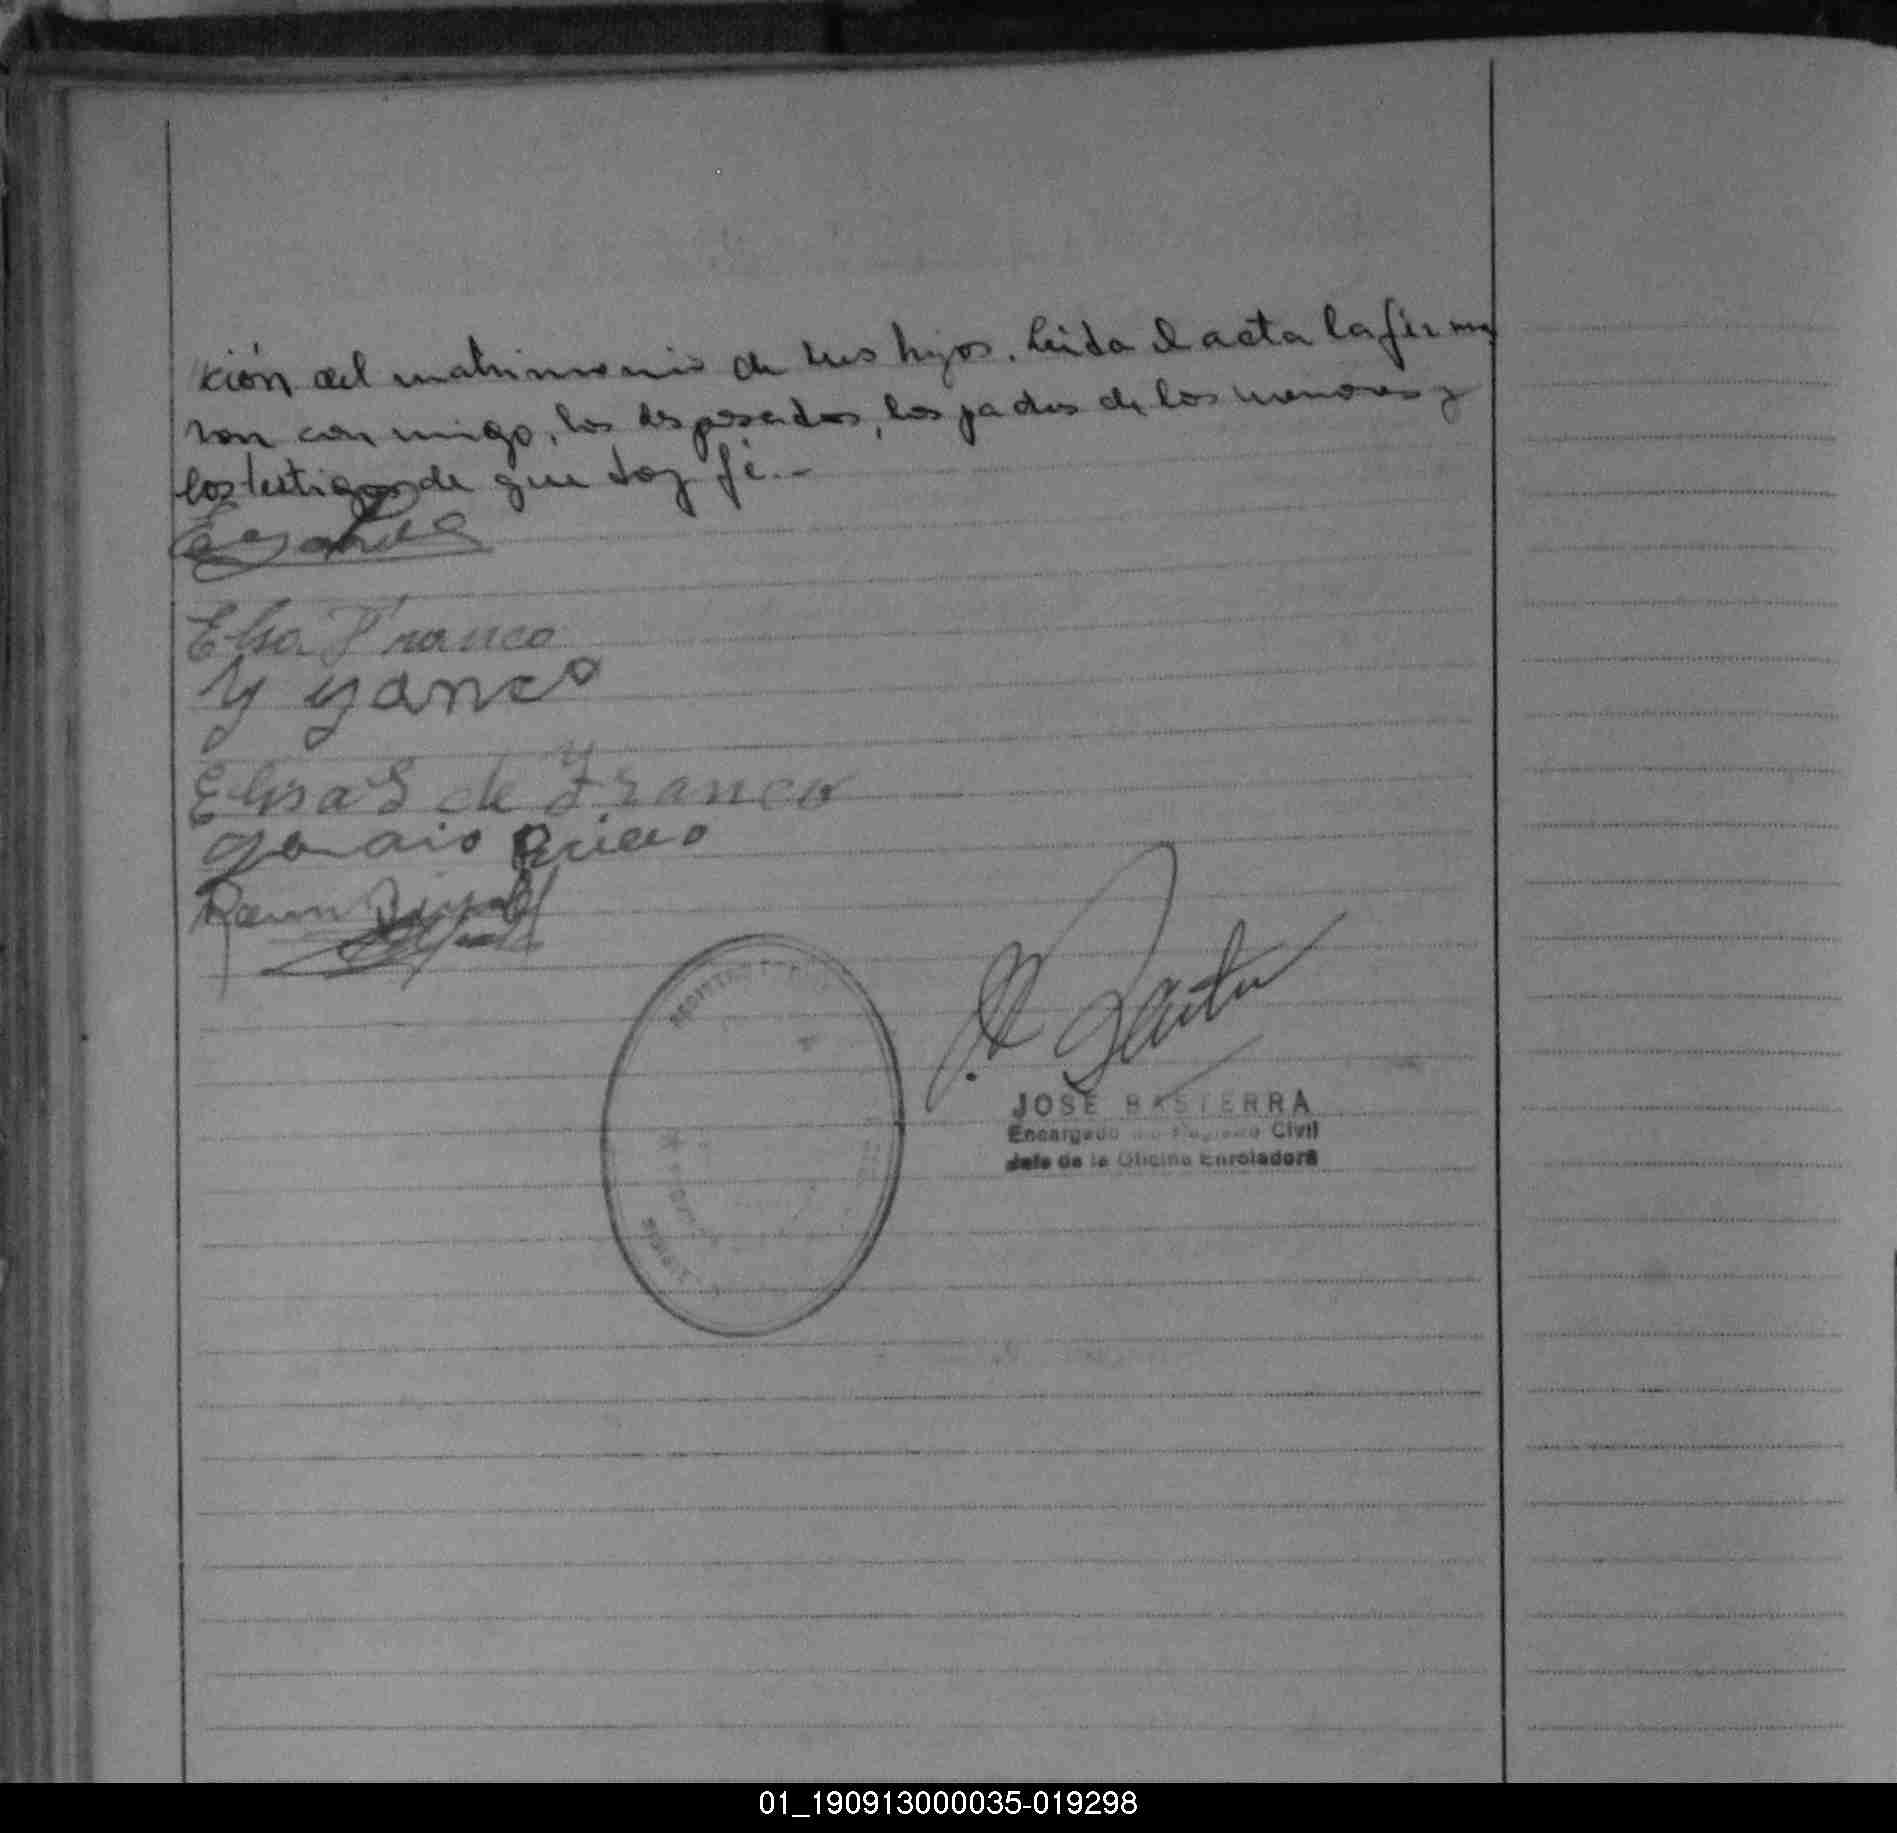 ción del matrimonio de sus hijos. Leida el acta la firma
ron con migo, los desposados, los padres de los menores y
los testigos de que doy fé.-
Elsa Franco
Y Franco
Elisa S de Franco
Ramon
JOSÉ BASTERRA
Encargado del Registro Civil
Jefe de la Oficina Enroladora
01_190913000035-019298